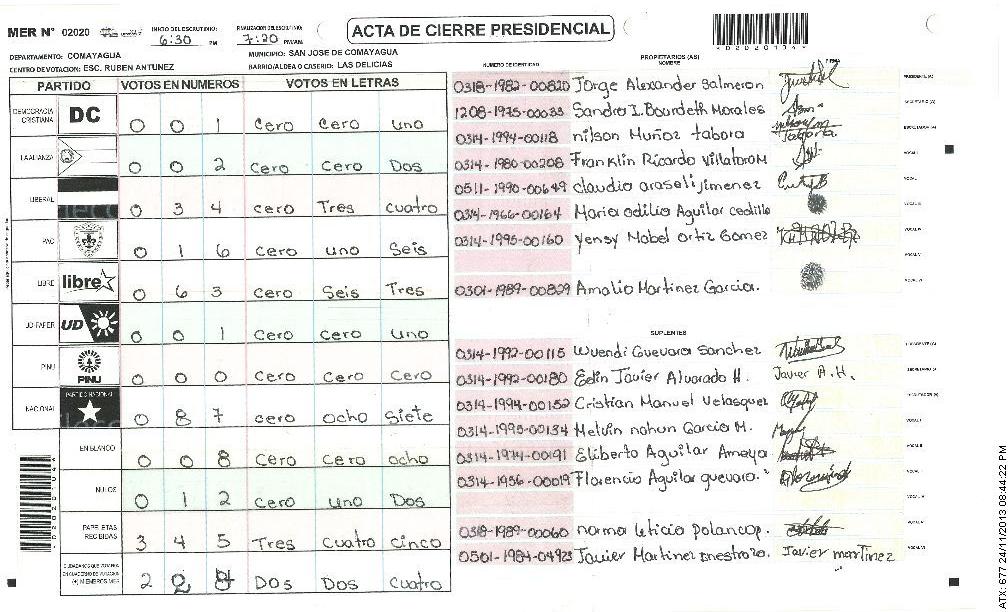 MER N° 02020 INICIO DEL ESCRUTINIO: 6:30 PM FINALIZACION DEL ESCRUTINIO: 7:20 PM/AM ACTA DE CIERRE PRESIDENCIAL
DEPARTAMENTO: COMAYAGUA MUNICIPIO: SAN JOSE DE COMAYAGUA
CENTRO DE VOTACION: ESC. RUBEN ANTUNEZ BARRIO/ALDEA O CASERIO: LAS DELICIAS
PARTIDO VOTOS EN NUMEROS VOTOS EN LETRAS
DEMOCRACIA CRISTIANA DC 0 0 1 Cero Cero uno
LA ALIANZA 0 0 2 Cero Cero Dos
LIBERAL 0 3 4 cero Tres cuatro
PAC 0 1 6 cero uno Seis
LIBRE libre 0 6 3 cero Seis Tres
UD-FAPER UD 0 0 1 Cero Cero uno
PINU PINU 0 0 0 Cero Cero Cero
NACIONAL PARTIDO NACIONAL 0 8 7 cero ocho Siete
EN BLANCO 0 0 8 Cero Cero ocho
NULOS 0 1 2 Cero uno Dos
PAPELETAS RECIBIDAS 3 4 5 Tres Cuatro Cinco
CIUDADANOS QUE VOTARON EN CUADERNO DE VOTACION (+) MIEMBROS MER 2 2 Dos Dos Cuatro
NUMERO DE IDENTIDAD PROPIETARIOS (AS) NOMBRE FIRMA
0318-1982-00820 Jorge Alexander Salmeron PRESIDENTE (A)
1208-1975-00033 Sandra I. Bourdeth Morales SECRETARIO (A)
0314-1994-00118 nilson Muñoz tabora ESCRUTADOR (A)
0314-1980-00208 Franklin Ricardo Villatoro M VOCAL I
0511-1990-00649 claudia araseli jimenez VOCAL II
0314-1966-00164 Maria odilia Aguilar cedillo VOCAL III
0314-1995-00160 yensy Mabel ortiz Gomez VOCAL IV
VOCAL V
0301-1989-00829 Amalio Martinez Garcia. VOCAL VI
SUPLENTES
0314-1992-00115 Wuendi Guevara Sanchez PRESIDENTE (A)
0314-1992-00180 Edin Javier Alvarado H. Javier A.H. SECRETARIO (A)
0314-1994-00152 Cristian Manuel Velasquez ESCRUTADOR (A)
0314-1995-00134 Melvin nahun Garcia M. VOCAL I
0314-1974-00191 Eliberto Aguilar Amaya VOCAL II
0314-1956-00019 Florencio Aguilar guevara. VOCAL III
VOCAL IV
0318-1989-00060 norma leticia polanco p. VOCAL V
0501-1984-04923 Javier Martinez Inestroza. Javier martinez VOCAL VI
ATX: 677.24/11/2013 08:44:22 PM